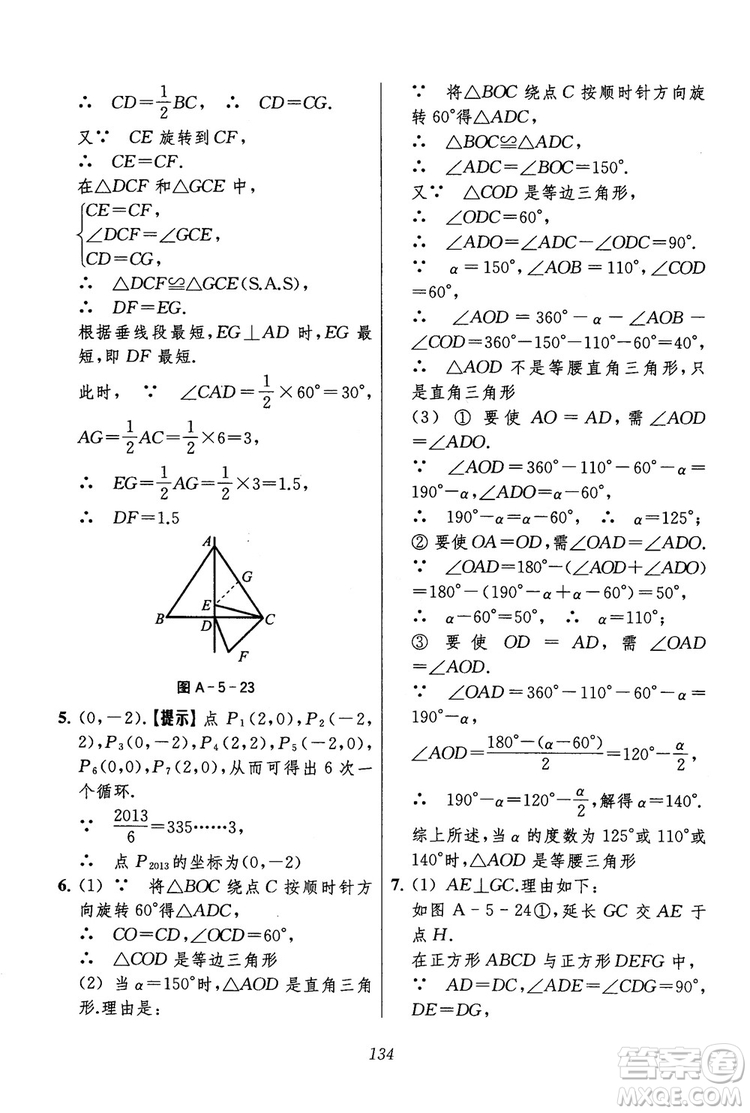 ∴ CD=1/2BC, ∴ CD=CG.
又∵ CE 旋转到 CF,
∴ CE=CF.
在△DCF 和△GCE 中,
{CE=CF,
∠DCF=∠GCE,
CD=CG,
∴ △DCF≌△GCE(S.A.S)
∴ DF=EG.
根据垂线段最短,EG⊥AD 时,EG 最
短,即 DF 最短.
此时, ∵ ∠CAD=1/2×60°=30°,
AG=1/2AC=1/2×6=3,
∴ EG=1/2AG=1/2×3=1.5,
∴ DF=1.5
A
G
E
B
D
C
F
图 A-5-23
5. (0,-2).【提示】点 P₁(2,0),P₂(-2,
2),P₃(0,-2),P₄(2,2),P₅(-2,0),
P₆(0,0),P₇(2,0),从而可得出 6 次一
个循环.
∵ 2013/6=335……3,
∴ 点 P₂₀₁₃的坐标为(0,-2)
6. (1) ∵ 将△BOC 绕点 C 按顺时针方
向旋转 60°得△ADC,
∴ CO=CD,∠OCD=60°,
∴ △COD 是等边三角形
(2) 当 α=150°时,△AOD 是直角三角
形.理由是:
∵ 将△BOC 绕点 C 按顺时针方向旋
转 60°得△ADC,
∴ △BOC≌△ADC,
∴ ∠ADC=∠BOC=150°.
又∵ △COD 是等边三角形,
∴ ∠ODC=60°,
∴ ∠ADO=∠ADC-∠ODC=90°.
∵ α=150°,∠AOB=110°,∠COD
=60°,
∴ ∠AOD=360°-α-∠AOB-
∠COD=360°-150°-110°-60°=40°,
∴ △AOD 不是等腰直角三角形,只
是直角三角形
(3) ① 要使 AO=AD,需∠AOD
=∠ADO.
∵ ∠AOD=360°-110°-60°-α=
190°-α,∠ADO=α-60°,
∴ 190°-α=α-60°, ∴ α=125°;
② 要使 OA=OD,需∠OAD=∠ADO.
∵ ∠OAD=180°-(∠AOD+∠ADO)
=180°-(190°-α+α-60°)=50°,
∴ α-60°=50°, ∴ α=110°;
③ 要使 OD=AD,需∠OAD
=∠AOD.
∵ ∠AOD=360°-110°-60°-α=
190°-α,
∠AOD=180°-(α-60°)/2=120°-α/2,
∴ 190°-α=120°-α/2,解得 α=140°.
综上所述,当 α 的度数为 125°或 110°或
140°时,△AOD 是等腰三角形
7. (1) AE⊥GC.理由如下:
如图 A-5-24①,延长 GC 交 AE 于
点 H.
在正方形 ABCD 与正方形 DEFG 中,
∵ AD=DC,∠ADE=∠CDG=90°,
DE=DG,
134
答案圈
MXQE.COM